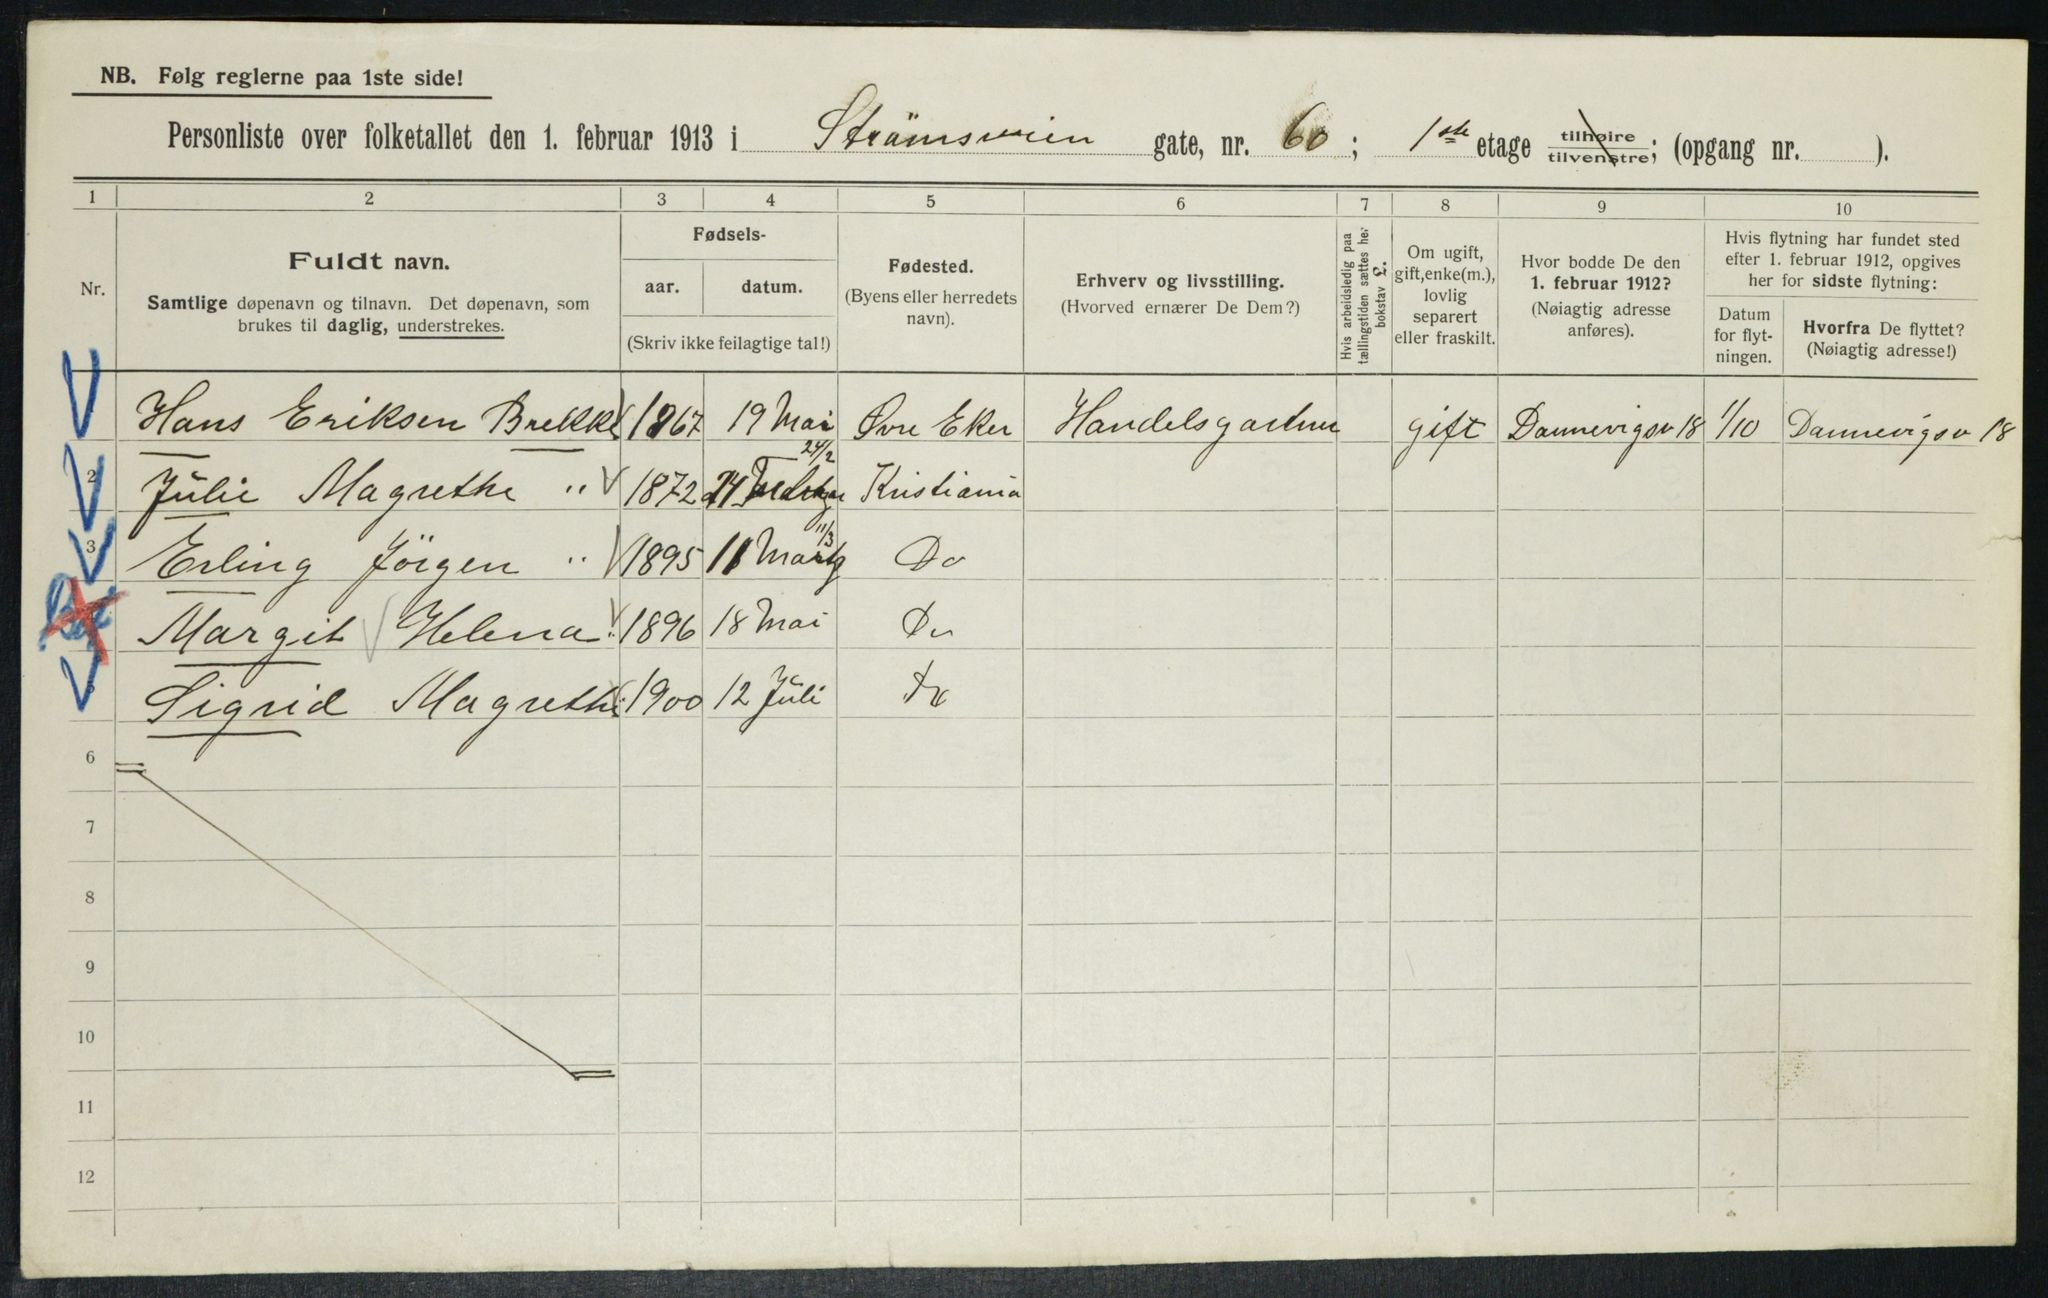 NB. Følg reglerne paa 1ste side!
Personliste over folketallet den 1. februar 1913 i Strömsveien gate, nr. 60; 1ste etage tilhøire tilvenstre; (opgang nr. ).
1 2 3 4 5 6 7 8 9 10
Nr.
Fuldt navn.
Samtlige døpenavn og tilnavn. Det døpenavn, som
brukes til daglig, understrekes.
Fødsels-
aar. datum.
(Skriv ikke feilagtige tal!)
Fødested.
(Byens eller herredets
navn).
Erhverv og livsstilling.
(Hvorved ernærer De Dem?)
Hvis arbeidsledig paa
tællingstiden sættes her
bokstav £.
Om ugift,
gift, enke(m.),
lovlig
separert
eller fraskilt.
Hvor bodde De den
1. februar 1912?
(Nøiagtig adresse
anføres).
Hvis flytning har fundet sted
efter 1. februar 1912, opgives
her for sidste flytning:
Datum
for flyt-
ningen.
Hvorfra De flyttet?
(Nøiagtig adresse!)
Hans Eriksen Brekke 1867 19 Mai Øvre Eker Handelsgartner gift Dannevigsv 18 1/10 Dannevigsv 18
24/2
2 Julie Magrethe " 1872 24 Kristiania
11/3
3 Erling Jörgen " 1895 11 Marts Do
Margit Helena " 1896 18 Mai Do
Sigrid Magrethe " 1900 12 Juli Do
6
7
8
9
10
11
12